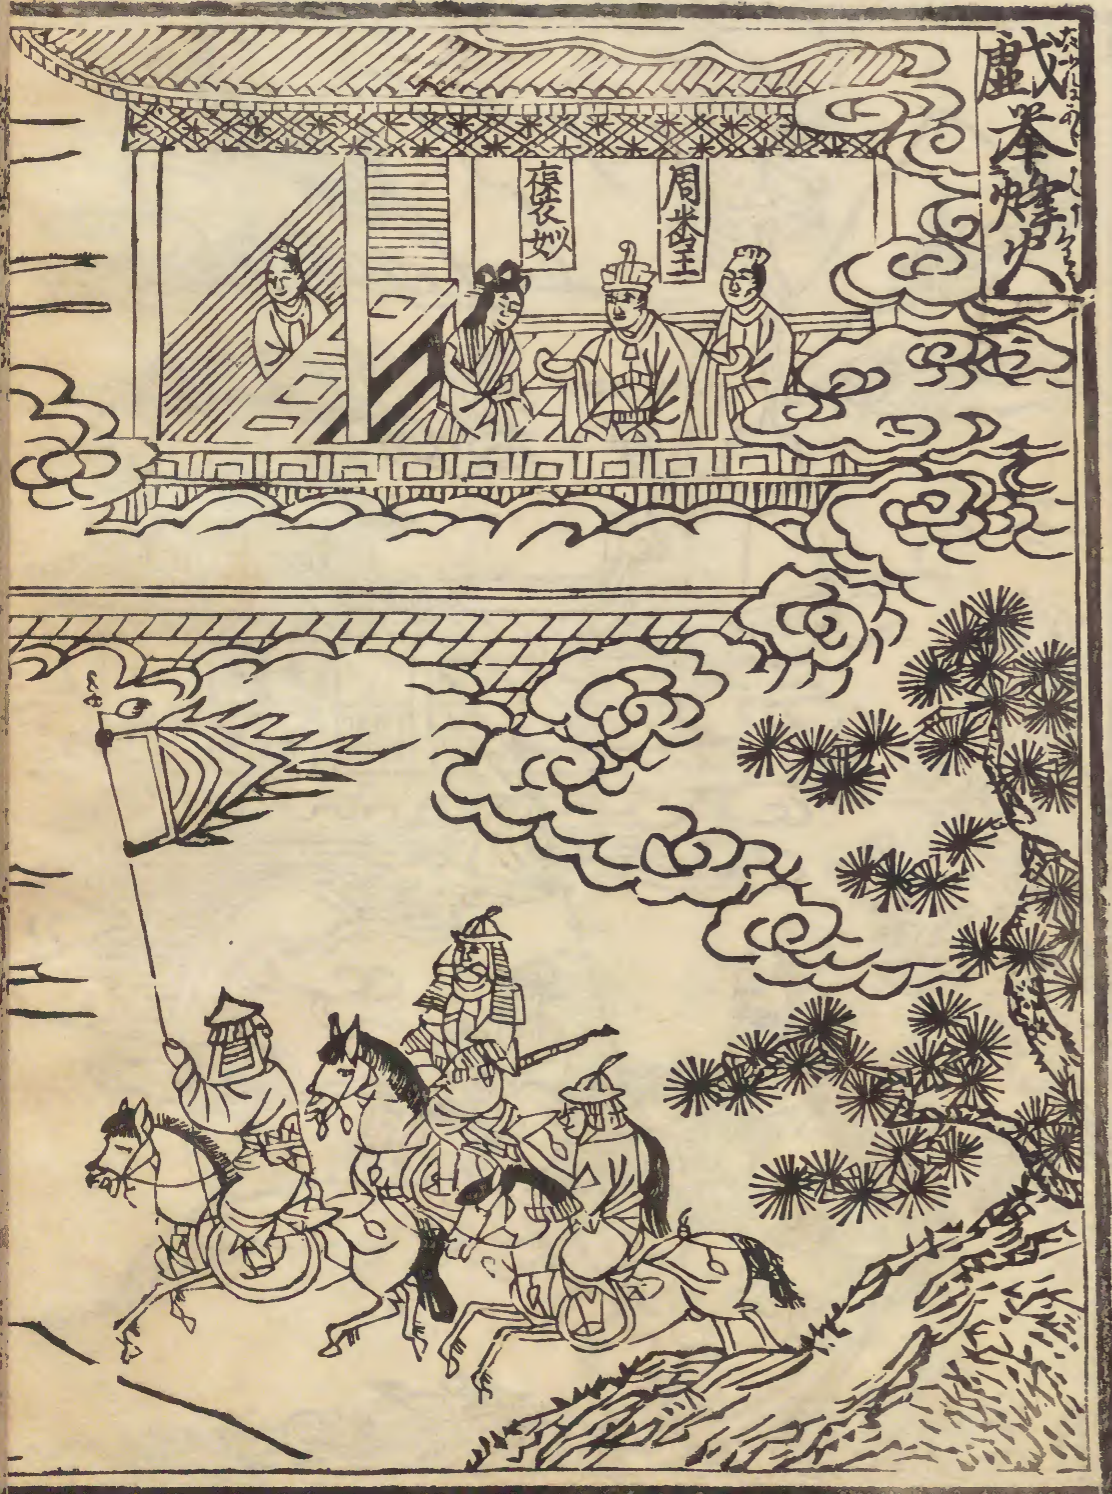 戯挙烽火
周幽王
褒姒